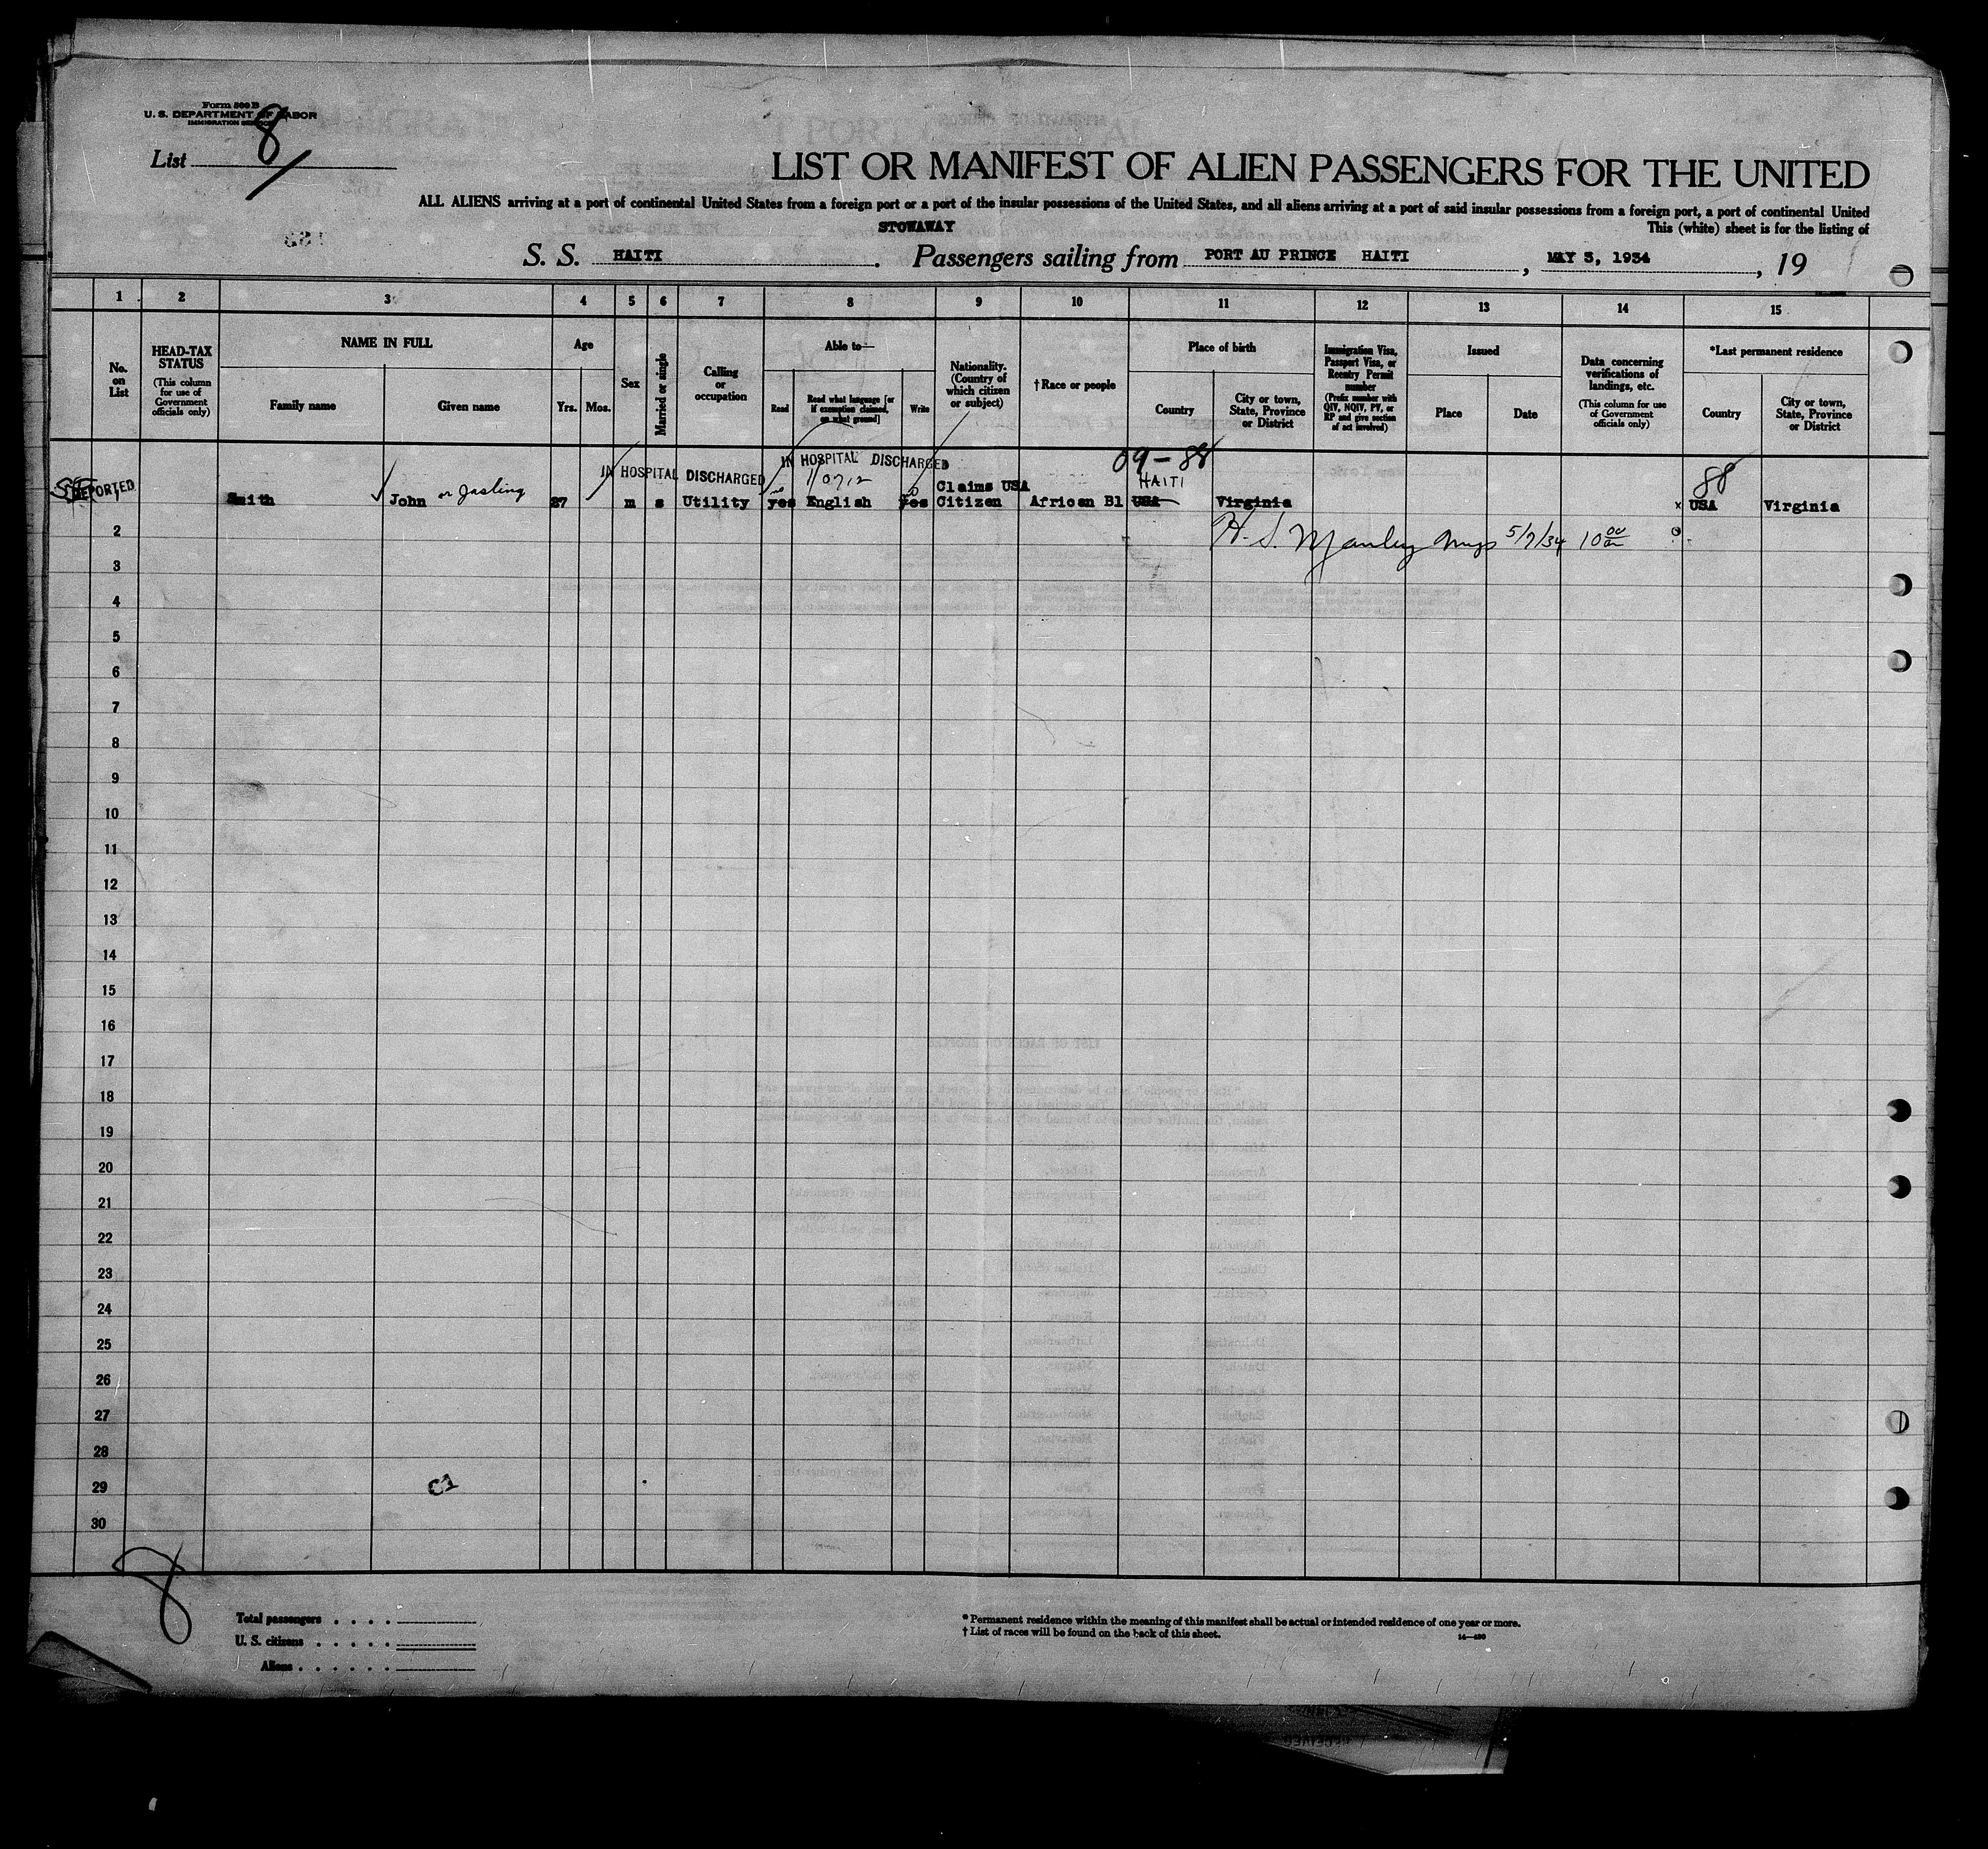 Form 500 B
U. S. DEPARTMENT OF LABOR
IMMIGRATION SERVICE
List 8
LIST OR MANIFEST OF ALIEN PASSENGERS FOR THE UNITED
ALL ALIENS arriving at a port of continental United States from a foreign port or a port of the insular possessions of the United States, and all aliens arriving at a port of said insular possessions from a foreign port, a port of continental United
STOWAWAY
This (white) sheet is for the listing of
S. S. HAITI. Passengers sailing from PORT AU PRINCE HAITI, MAY 3, 1934, 19
1 2 3 4 5 6 7 8 9 10 11 12 13 14 15
No. on List
HEAD-TAX STATUS
(This column for use of Government officials only)
NAME IN FULL
Family name
Given name
Age
Yrs. Mos.
Sex
Married or single
Calling or occupation
Able to—
Read
Read what language [or if exemption claimed, on what ground]
Write
Nationality. (Country of which citizen or subject)
† Race or people
Place of birth
Country
City or town, State, Province or District
Immigration Visa, Passport Visa, or Reentry Permit number
(Prefix number with QIV, NQIV, PV, or RP and give section of act involved)
Issued
Place
Date
Data concerning verifications of landings, etc.
(This column for use of Government officials only)
*Last permanent residence
Country
City or town, State, Province or District
IN HOSPITAL DISCHARGED
IN HOSPITAL DISCHARGED
09-88
88
DEPORTED
Claims USA
HAITI
Smith John or 27 m s Utility yes English yes Citizen African Bl USA Virginia x USA Virginia
H. S. Manley 5/7/34 10 00
2
3
4
5
6
7
8
9
10
11
12
13
14
15
16
17
18
19
20
21
22
23
24
25
26
27
28
29
30
8
Total passengers . . . .
U. S. citizens . . . . .
Aliens . . . . . .
* Permanent residence within the meaning of this manifest shall be actual or intended residence of one year or more.
† List of races will be found on the back of this sheet.
14—480